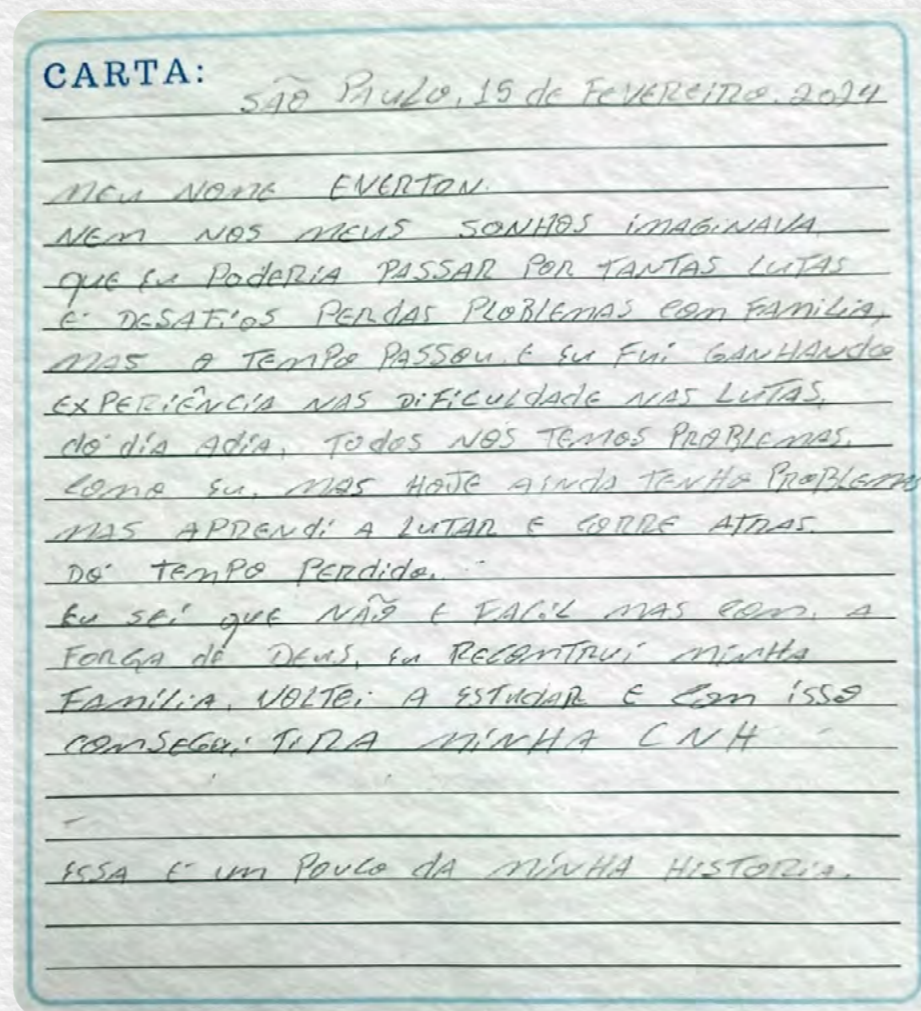 CARTA:
SÃO PAULO, 15 de FEVEREIRO. 2024
MEU NOME EVERTON.
NEM NOS MEUS SONHOS IMAGINAVA
QUE EU PODERIA PASSAR POR TANTAS LUTAS
E DESAFIOS PERDAS PLOBLEMAS COM FAMILIA,
MAS O TEMPO PASSOU E EU FUI GANHANDO
EXPERIÊNCIA NAS DIFICULDADE NAS LUTAS,
do dia Adia, TODOS NÓS TEMOS PROBLEMAS.
COMO EU, MAS HOJE AINDA TENHO PROBLEMAS
MAS APRENDI A LUTAR E CORRE ATRAS.
DO TEMPO PERDIDO.
EU SEI QUE NÃO E FACIL MAS COM, A
FORÇA de DEUS, EU RECOMTRUI MINHA
FAMÍLIA, VOLTEI A ESTUDAR E COM ISSO
COMSEGUI TIRA MINHA CNH
ESSA É UM POUCO DA MINHA HISTORIA.